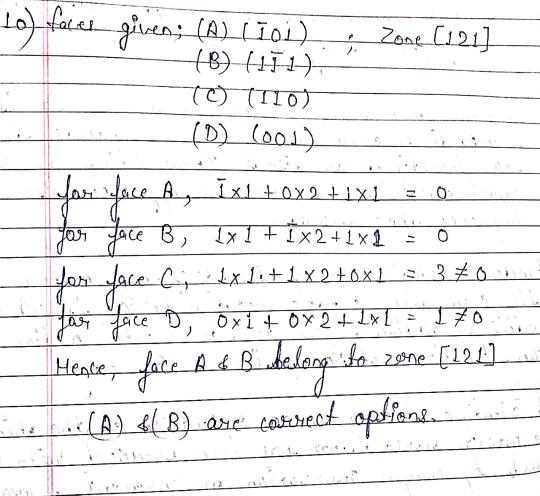 10) faces given; (A) (1̄01) ; Zone [121]
(B) (11̄1)
(C) (110)
(D) (001)
for face A, 1̄x1 + 0x2 + 1x1 = 0
for face B, 1x1 + 1̄x2 + 1x1 = 0
for face C, 1x1 + 1x2 + 0x1 = 3 ≠ 0
for face D, 0x1 + 0x2 + 1x1 = 1 ≠ 0
Hence, face A & B belong to zone [121]
(A) & (B) are correct options.